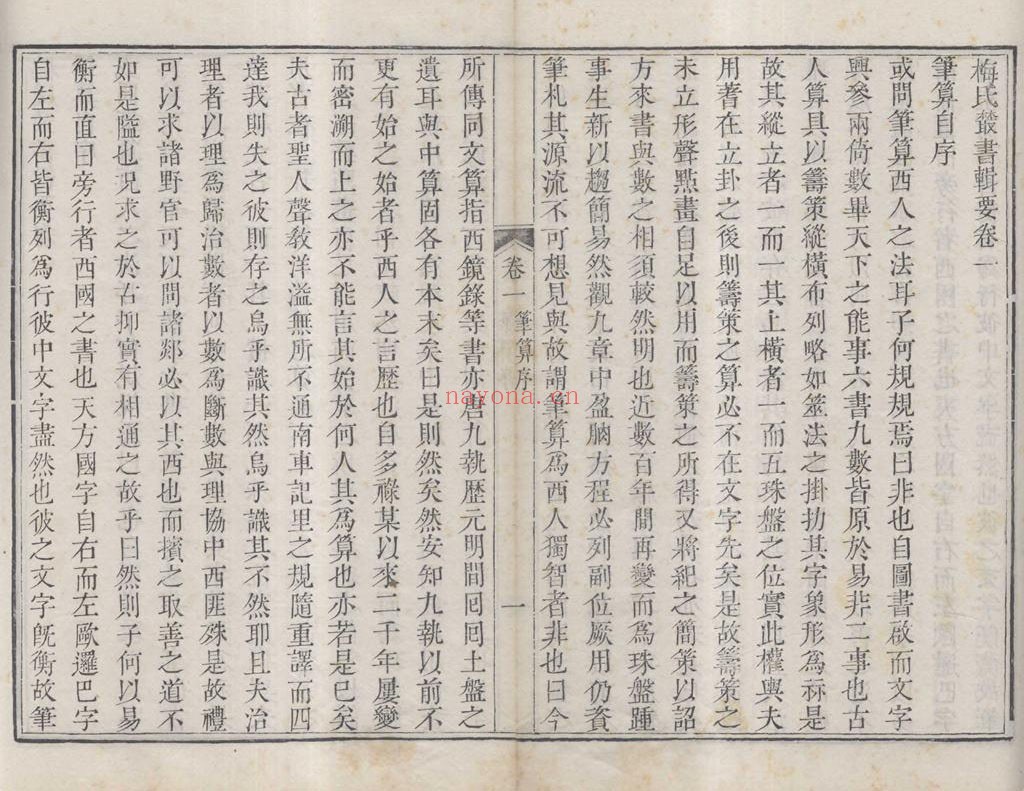 梅氏叢書輯要卷一
筆算自序
或問筆算西人之法耳子何規規焉曰非也自圖書啟而文字
興參兩倚數畢天下之能事六書九數皆原於易非二事也古
人算具以籌策縱橫布列略如筮法之掛扐其字象形為祘是
故其縱立者一而一其上橫者一而五珠盤之位實此權輿夫
用蓍在立卦之後則籌策之算必不在文字先矣是故籌策之
未立形聲點畫自足以用而籌策之所得又將紀之簡策以詔
方來書與數之相須較然明也近數百年間再變而為珠盤踵
事生新以趨簡易然觀九章中盈朒方程必列副位厥用仍資
筆札其源流不可想見與故謂筆算為西人獨智者非也曰今
卷一
筆算序
一
所傳同文算指西鏡錄等書亦唐九執歷元明間囘囘土盤之
遺耳與中算固各有本末矣曰是則然矣然安知九執以前不
更有始之始者乎西人之言歷也自多祿某以來二千年屢變
而密溯而上之亦不能言其始於何人其為算也亦若是已矣
夫古者聖人聲教洋溢無所不通南車記里之規隨重譯而四
達我則失之彼則存之烏乎識其然烏乎識其不然耶且夫治
理者以理為歸治數者以數為斷數與理協中西匪殊是故禮
可以求諸野官可以問諸郯必以其西也而擯之取善之道不
如是隘也況求之於古抑實有相通之故乎曰然則子何以易
衡而直曰旁行者西國之書也天方國字自右而左歐邏巴字
自左而右皆衡列為行彼中文字盡然也彼之文字既衡故筆
nayona.cn